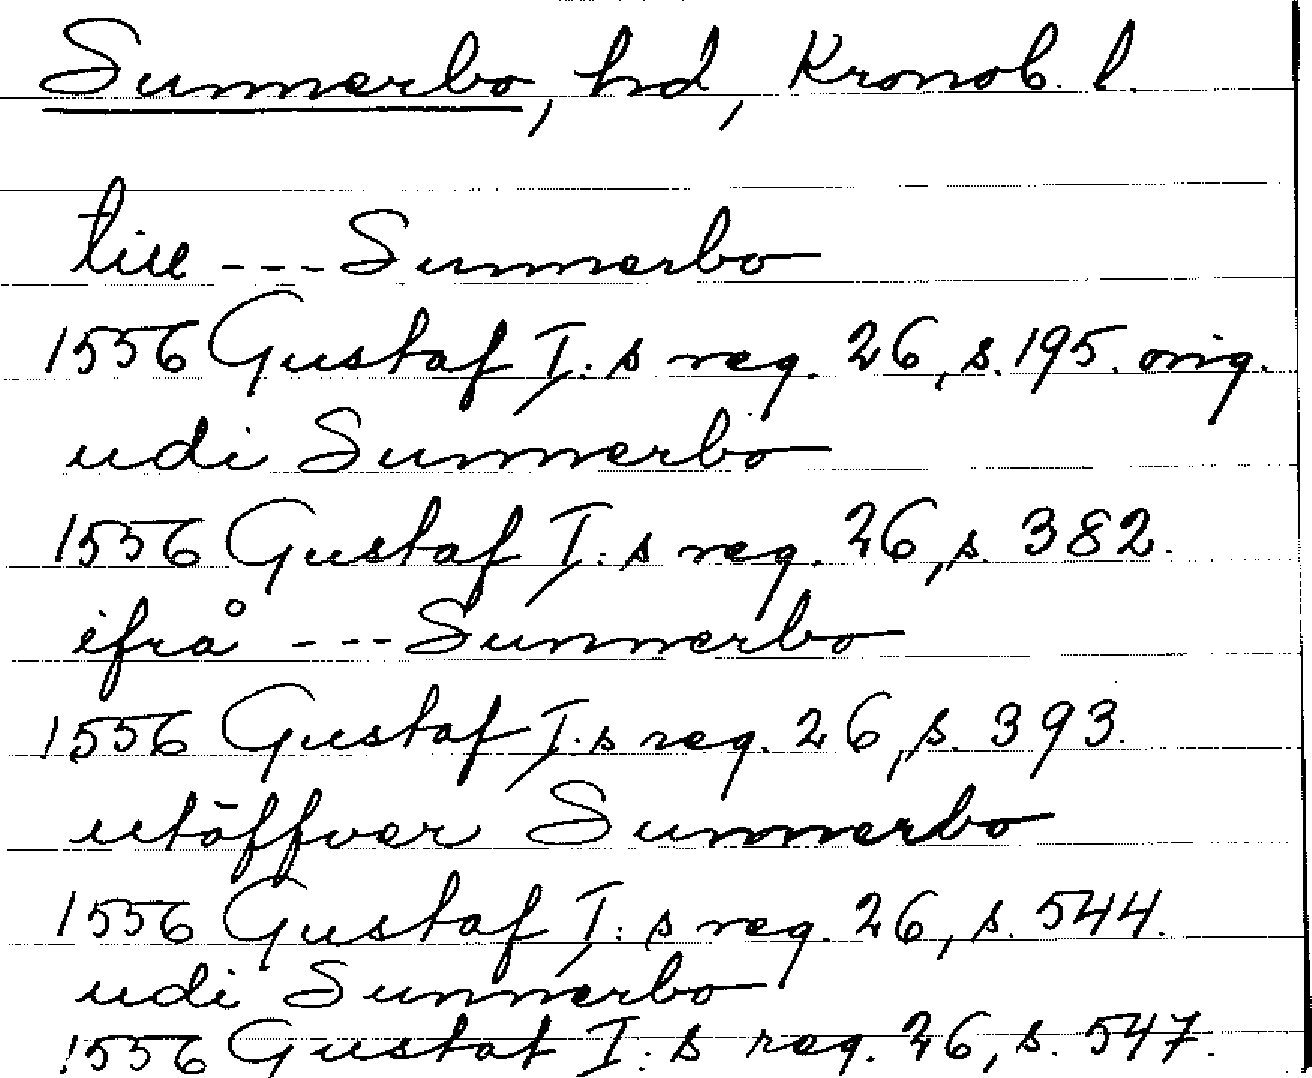 Sunnerbo, hd, Kronob. l.
till --- Sunnerbo
1556 Gustaf I:s reg. 26, s. 195. orig.
udi Sunnerbo
1556 Gustaf I:s reg. 26, s. 382.
ifrå --- Sunnerbo
1556 Gustaf I:s reg. 26, s. 393.
utöffver Sunnerbo
1556 Gustaf I:s reg. 26, s. 544.
udi Sunnerbo
1556 Gustaf I:s reg. 26, s. 547.